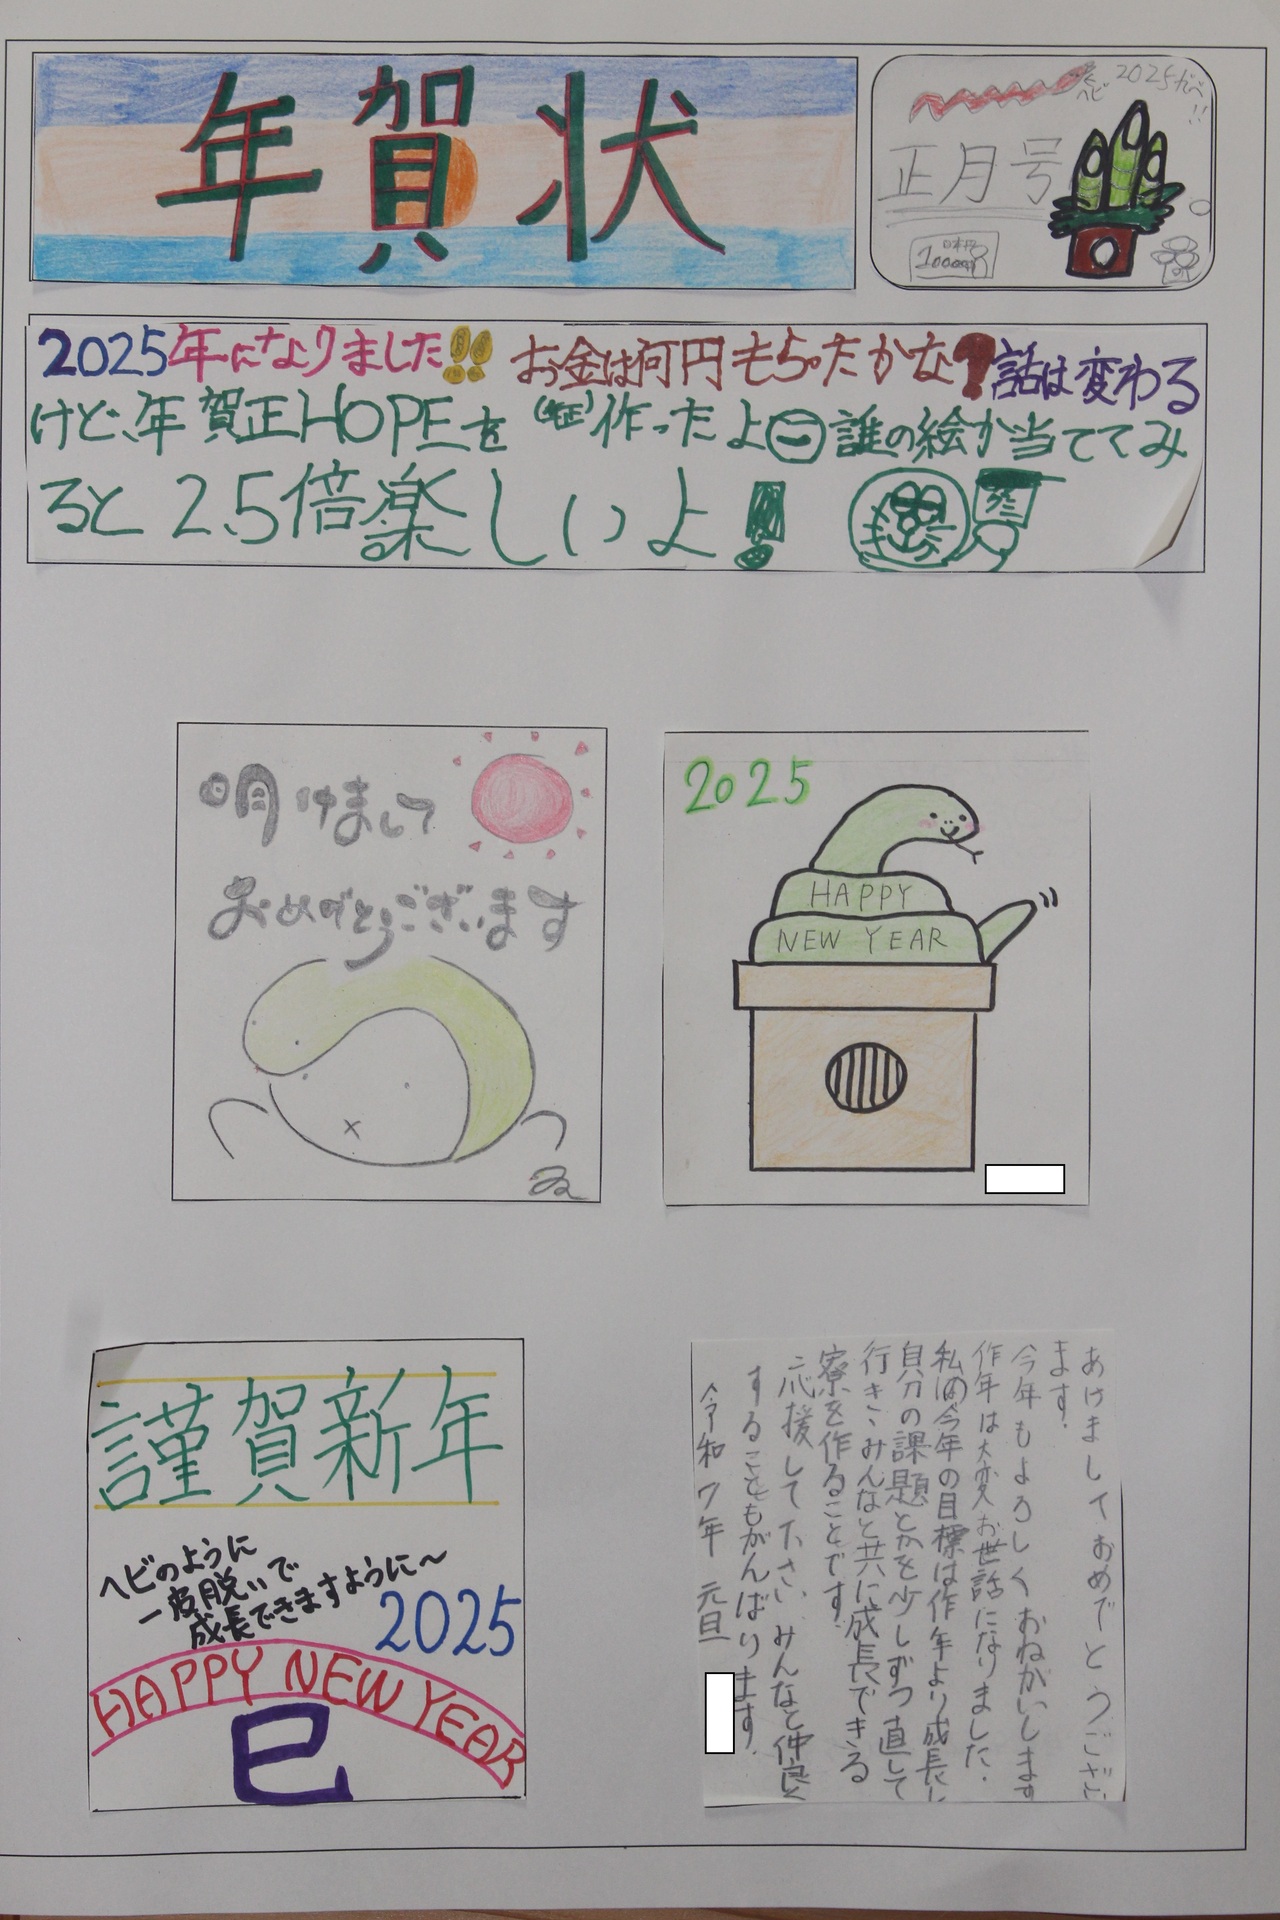 年賀状
ヘビ
2025だべ!!
正月号
日本円
2025年になりました!!お金は何円もらったかな?話は変わる
けど、年賀正HOPEを作ったよ誰の絵か当ててみ
ると2.5倍楽しいよ!
明けまして
おめでとうございます
2025
HAPPY
NEW YEAR
謹賀新年
ヘビのように
一皮脱いで
成長できますように〜
2025
HAPPY NEW YEAR
巳
あけましておめでとうござい
ます。
今年もよろしくおねがいします
作年は大変お世話になりました。
私の今年の目標は作年より成長し
自分の課題とかを少しずつ直して
行き、みんなと共に成長できる
寮を作ることです。
応援して下さい、みんなと仲良く
することもがんばります。
令和7年 元旦